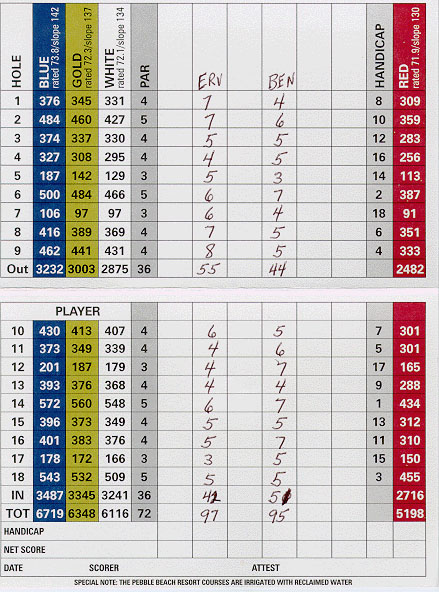 HOLE BLUE rated 73.8/slope 142 GOLD rated 72.3/slope 137 WHITE rated 72.1/slope 134 PAR ERV BEN HANDICAP RED rated 71.9/slope 130
1 376 345 331 4 7 4 8 309
2 484 460 427 5 7 6 10 359
3 374 337 330 4 5 5 12 283
4 327 308 295 4 4 5 16 256
5 187 142 129 3 5 3 14 113
6 500 484 466 5 6 7 2 387
7 106 97 97 3 6 4 18 91
8 416 389 369 4 7 5 6 351
9 462 441 431 4 8 5 4 333
Out 3232 3003 2875 36 55 44 2482
PLAYER
10 430 413 407 4 6 5 7 301
11 373 349 339 4 4 6 5 301
12 201 187 179 3 4 7 17 165
13 393 376 368 4 4 4 9 288
14 572 560 548 5 6 7 1 434
15 396 373 349 4 5 5 13 312
16 401 383 376 4 5 7 11 310
17 178 172 166 3 3 5 15 150
18 543 532 509 5 5 5 3 455
IN 3487 3345 3241 36 42 51 2716
TOT 6719 6348 6116 72 97 95 5198
HANDICAP
NET SCORE
DATE SCORER ATTEST
SPECIAL NOTE: THE PEBBLE BEACH RESORT COURSES ARE IRRIGATED WITH RECLAIMED WATER